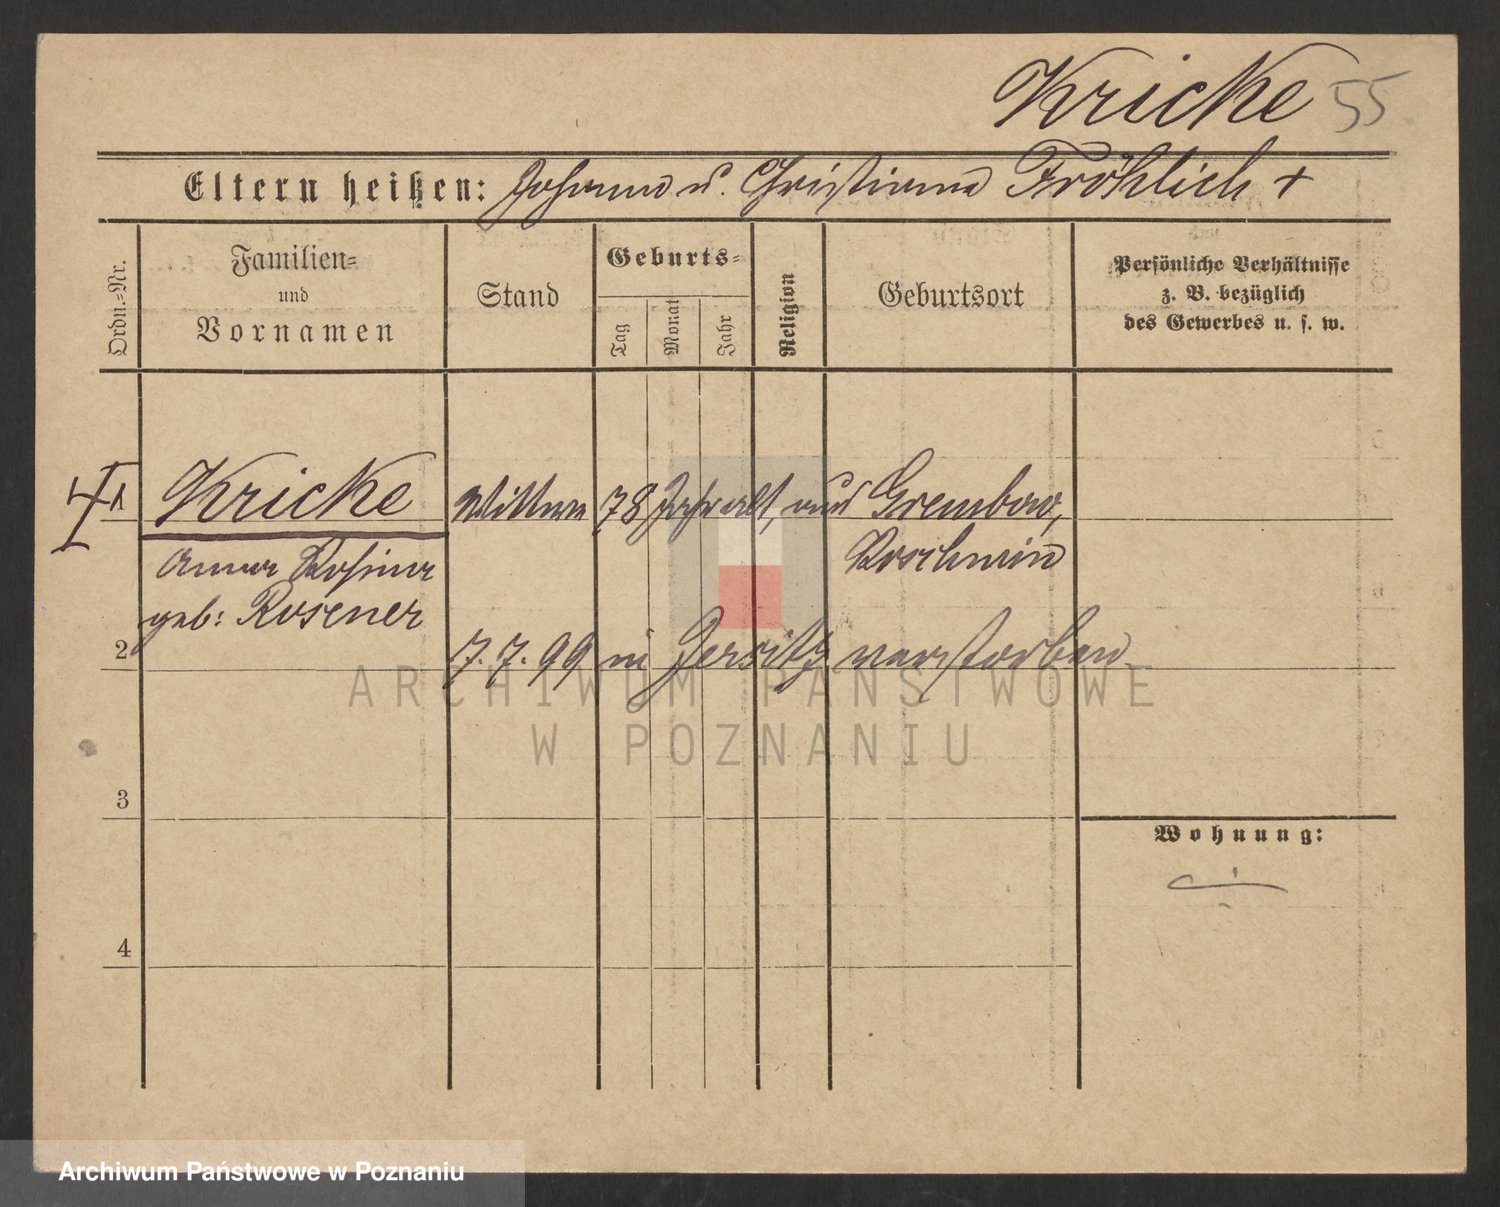 Kricke 55
Eltern heißen: Johann u. Christiana Fröhlich +
Ordn.=Nr.
Familien=
und
Vornamen
Stand
Geburts=
Tag
Monat
Jahr
Religion
Geburtsort
Persönliche Verhältnisse
z. B. bezüglich
des Gewerbes u. s. w.
1 Kricke Wittwe 78 Jahr alt, aus Grembow,
Anna Rosina Koschmin
geb: Rosener
2 7.7.99 in Jersitz verstorben
ARCHIWUM PAŃSTWOWE
W POZNANIU
3
Wohnung:
4
Archiwum Państwowe w Poznaniu